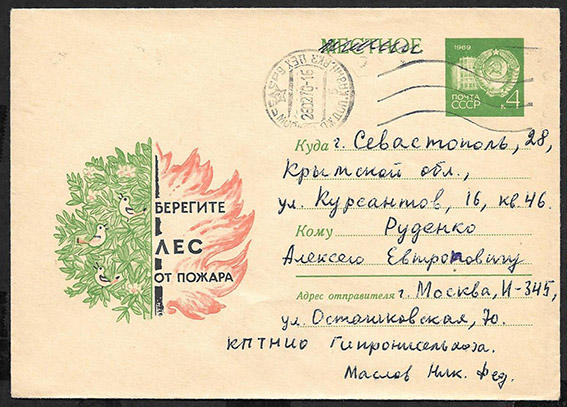 МЕСТНОЕ
1969
ПОЧТА
СССР
4
2802 70-16
Куда г. Севастополь, 28,
Крымской обл.,
ул. Курсантов, 16, кв. 46.
Кому Руденко
Алексею Евтроповичу
Адрес отправителя г. Москва, И-345,
ул. Осташковская, 70.
КПТНИО Гипронисельхоза.
Маслов Ник. Фед.
БЕРЕГИТЕ
ЛЕС
ОТ ПОЖАРА